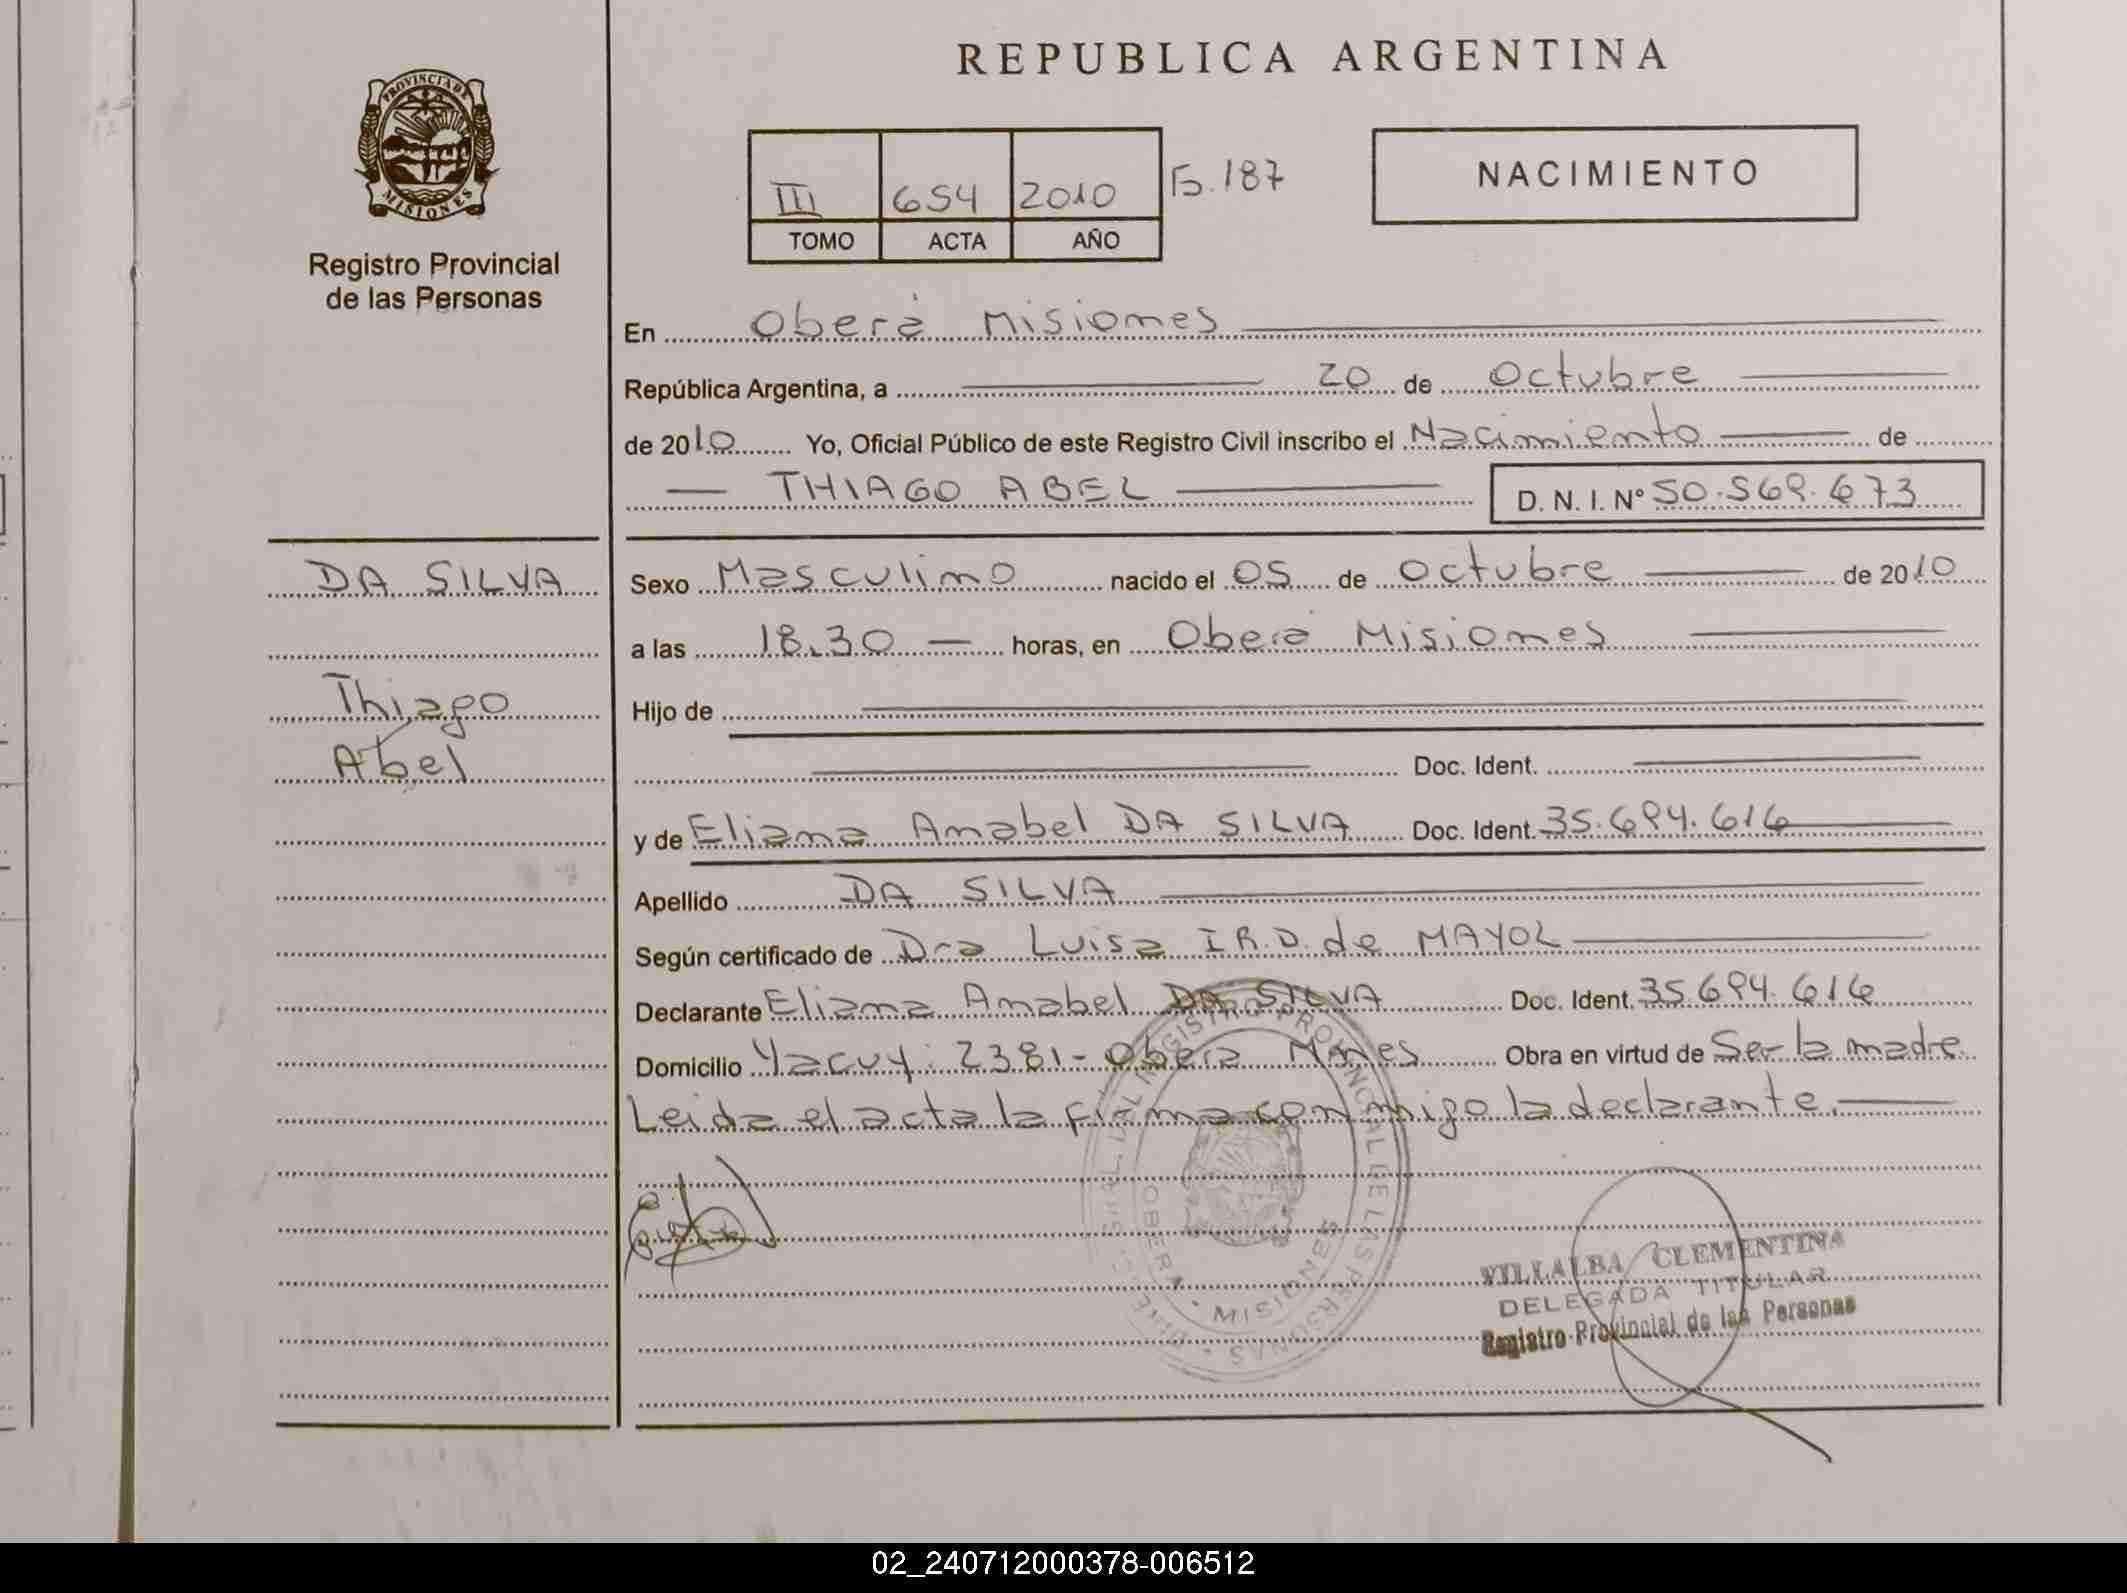 REPUBLICA ARGENTINA
PROVINCIA DE MISIONES
Registro Provincial
de las Personas
III 654 2010 Fo. 187
TOMO ACTA AÑO
NACIMIENTO
En Oberá Misiones
República Argentina, a 20 de Octubre
de 2010 Yo, Oficial Público de este Registro Civil inscribo el Nacimiento de
THIAGO ABEL D. N. I. Nº 50.569.673
DA SILVA
Thiago
Abel
Sexo Masculino nacido el 05 de Octubre de 2010
a las 18.30 horas, en Oberá Misiones
Hijo de
Doc. Ident.
y de Eliana Anabel DA SILVA Doc. Ident. 35.694.616
Apellido DA SILVA
Según certificado de Dra Luisa I.R.D. de MAYOL
Declarante Eliana Anabel DA SILVA Doc. Ident. 35.694.616
Domicilio Yacuy 2381 - Obera Mnes Obra en virtud de Ser la madre
Leida el acta la firma con migo la declarante.
REGISTRO PROVINCIAL DE LAS PERSONAS
OBERA • MISIONES
VILLALBA CLEMENTINA
DELEGADA TITULAR
Registro Provincial de las Personas
02_240712000378-006512